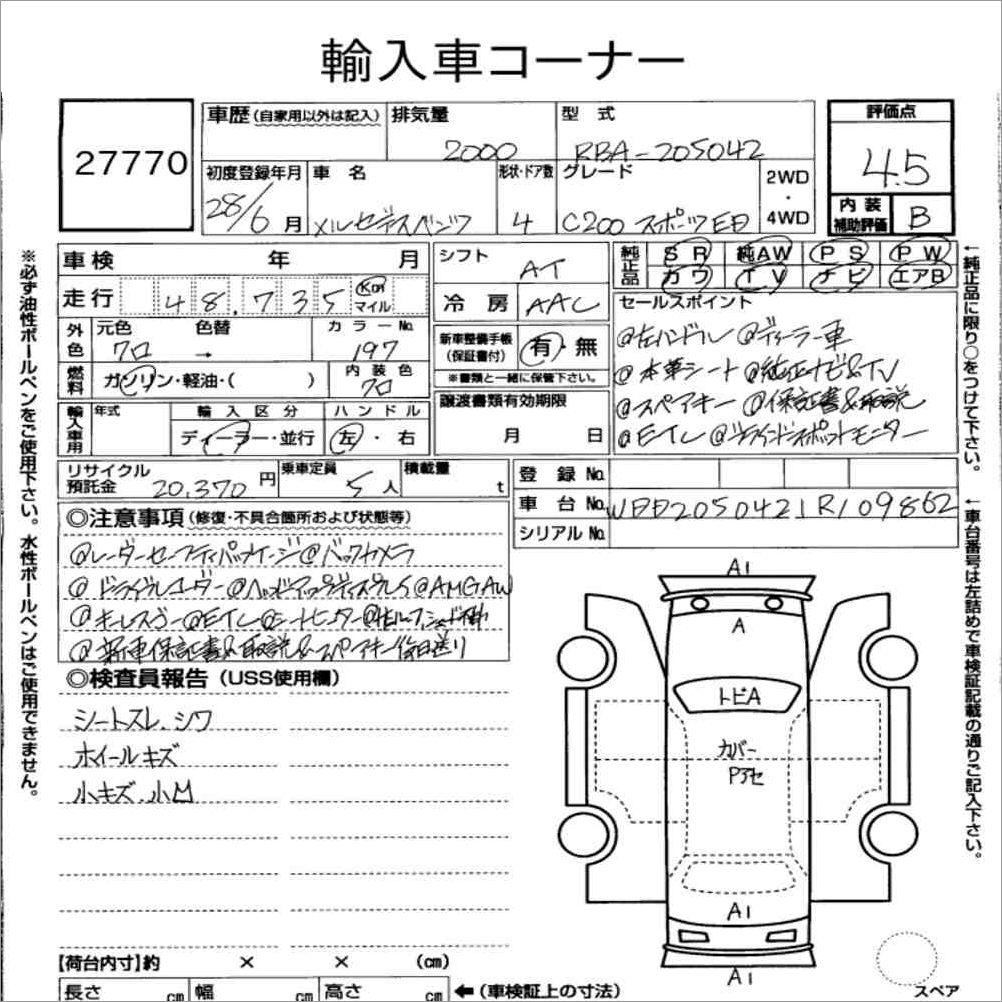 輸入車コーナー
27770
車歴 (自家用以外は記入) 排気量 2000 型式 RBA-205042 評価点 4.5
初度登録年月 28/6月 車名 メルセデスベンツ 形状・ドア数 4 グレード C200 スポーツ 2WD・4WD
内装補助評価 B
車検 年 月
走行 48,735 Km マイル
外色 元色 クロ 色替 → カラーNo. 197
燃料 ガソリン・軽油・( ) 内装色 クロ
輸入車用 年式 輸入区分 ディーラー・並行 ハンドル 左・右
リサイクル預託金 20,370円 乗車定員 5人 積載量 t
シフト AT
冷房 AAC
新車整備手帳(保証書付) 有・無
※書類と一緒に保管下さい。
譲渡書類有効期限
月 日
純正品 SR 純AW PS PW
カワ TV ナビ エアB
セールスポイント
@左ハンドル @ディーラー車
@本革シート @純正ナビ&TV
@スペアキー @保証書&取説
@ETC @ブラインドスポットモニター
登録No.
車台No. WDD2050421R109862
シリアルNo.
◎注意事項(修復・不具合箇所および状態等)
@レーダーセーフティパッケージ@バックカメラ
@ドライブレコーダー@ヘッドアップディスプレイ@AMGAW
@キーレスゴー@ETC@シートヒーター
@新車保証書&取説&スペアキー後日送り
◎検査員報告(USS使用欄)
シートスレ、シワ
ホイールキズ
小キズ、小凹
A1
A
トビA
カバー
Pアセ
A1
A1
【荷台内寸】約 × × (cm)
長さ cm 幅 cm 高さ cm ←(車検証上の寸法)
スペア
※必ず油性ボールペンをご使用下さい。水性ボールペンはご使用できません。
←純正品に限り○をつけて下さい。
←車台番号は左詰めで車検証記載の通りご記入下さい。